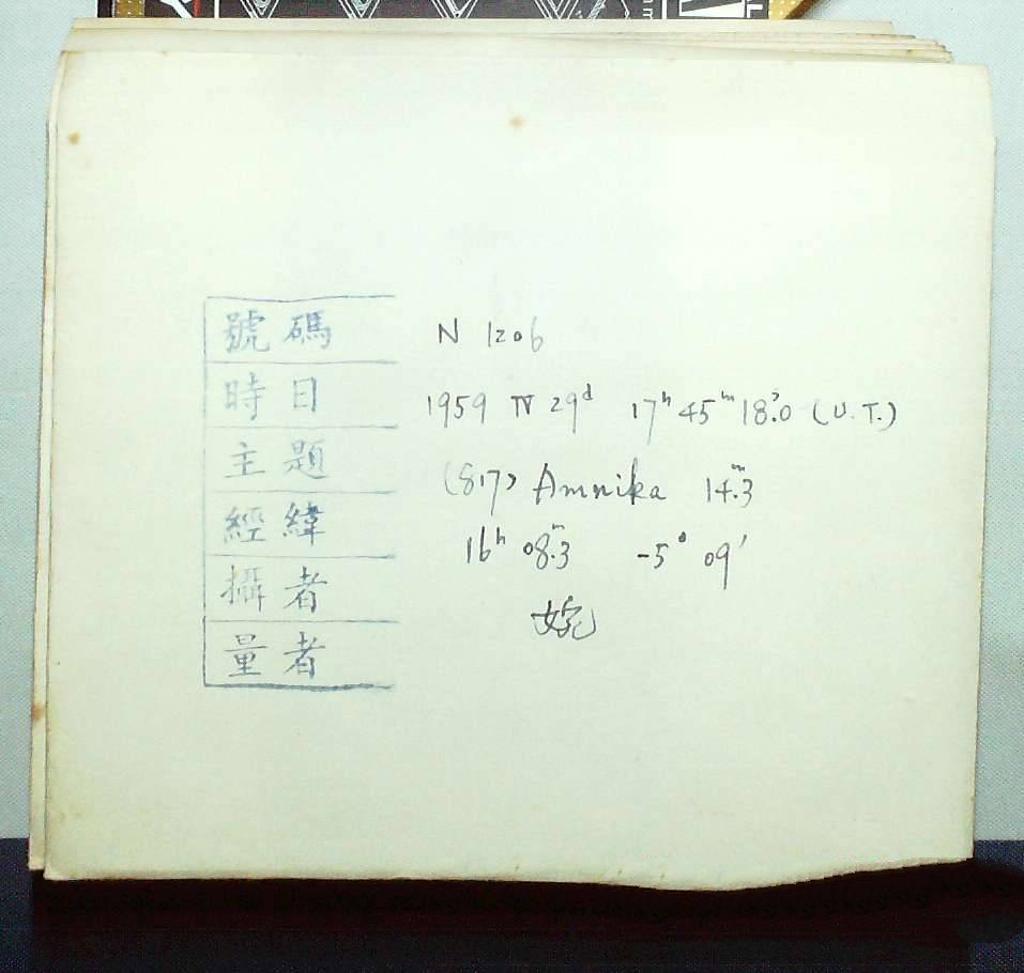 號碼 N 1206
時日 1959 IV 29d 17h 45m 18s.0 (U.T.)
主題 (817) Amnika 14m.3
經緯 16h 08m.3 -5° 09'
攝者 婉
量者